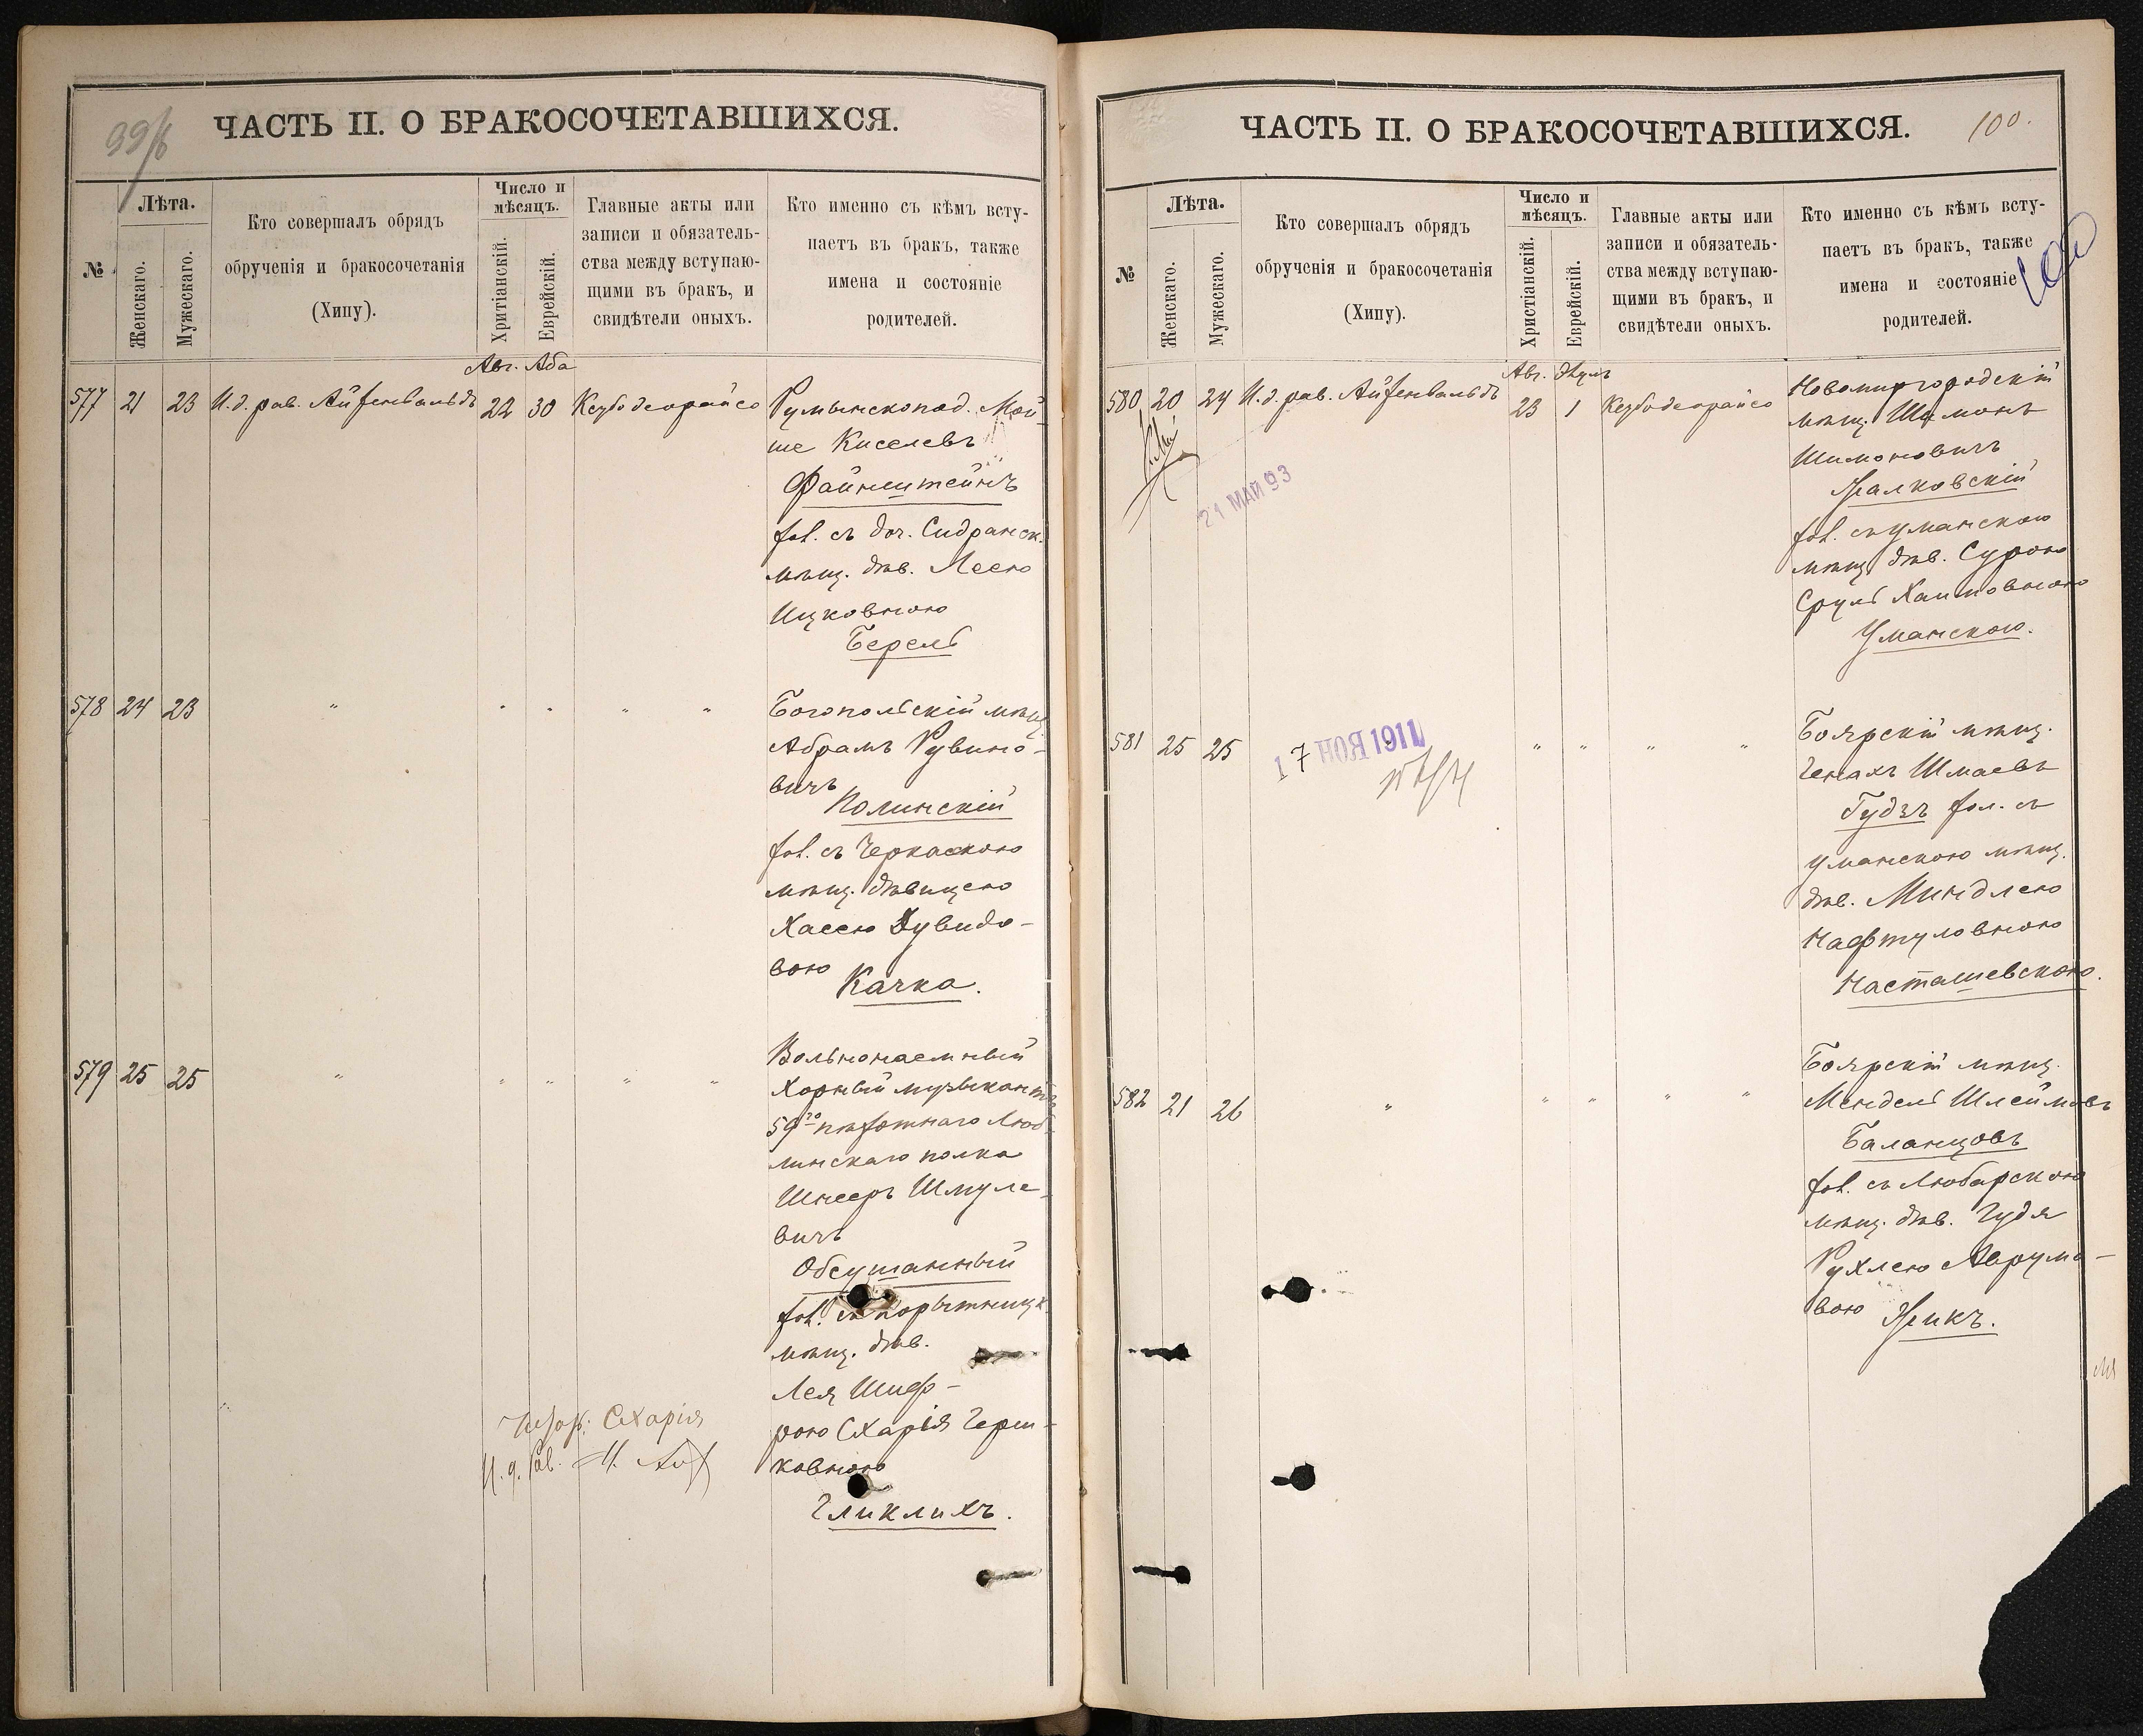 99/б
ЧАСТЬ II. О БРАКОСОЧЕТАВШИХСЯ.
№
Лѣта.
Женскаго.
Мужескаго.
Кто совершалъ обрядъ
обрученія и бракосочетанія
(Хипу).
Число и
мѣсяцъ.
Хритіанскій.
Еврейскій.
Главные акты или
записи и обязатель-
ства между вступаю-
щими въ бракъ, и
свидѣтели оныхъ.
Кто именно съ кѣмъ всту-
паетъ въ бракъ, также
имена и состояніе
родителей.
Авг. Аба
577 21 23 И.д. рав. Айзенвальдъ 22 30 Кезубо деорайсо Румынскопод. Мой-
ше Киселевъ
Файнштейнъ
хол. съ доч. Сидранск.
мѣщ. дѣв. Леею
Ицковною
Берель
578 24 23 " " " " " Богопольскій мѣщ.
Абрамъ Рувино-
вичъ
Полинскій
хол. съ Черкаскою
мѣщ. дѣвицею
Хасею Дувидо-
вою
Качка.
579 25 25 " " " " " Вольнонаемный
Хорный музыкантъ
59го пѣхотнаго Люб-
линскаго полка
Шнееръ Шмуле-
вичъ
Обсушанный
хол. съ Корытницк.
мѣщ. дѣв.
Лея Шиф-
рою Схарія Герш-
ковною
Гликлихъ.
Схарія
И. д. Рав.
ЧАСТЬ II. О БРАКОСОЧЕТАВШИХСЯ.
100.
№
Лѣта.
Женскаго.
Мужескаго.
Кто совершалъ обрядъ
обрученія и бракосочетанія
(Хипу).
Число и
мѣсяцъ.
Христіанскій.
Еврейскій.
Главные акты или
записи и обязатель-
ства между вступаю-
щими въ бракъ, и
свидѣтели оныхъ.
Кто именно съ кѣмъ всту-
паетъ въ бракъ, также
имена и состояніе
родителей.
100
Авг. Элулъ
580 20 24 И.д. рав. Айзенвальдъ 23 1 Кезубо деорайсо Новомиргородскій
мѣщ. Шимонъ
Шимоновичъ
Малковскій
хол. съ уманскою
мѣщ. дѣв. Сурою
Сруль Хаимовною
Уманскою.
21 МАЙ 93
581 25 25 " " " " Боярскій мѣщ.
Генахъ Шмаевъ
Гудзъ хол. съ
уманскою мѣщ.
дѣв. Миндлею
Нафтуловною
Насташевскою.
17 НОЯ 1911
582 21 26 " " " " " Боярскій мѣщ.
Мендель Шлеймовъ
Баланцовъ
хол. съ Любарскою
мѣщ. дѣв. Гудя
Рухлею Аврумо-
вою